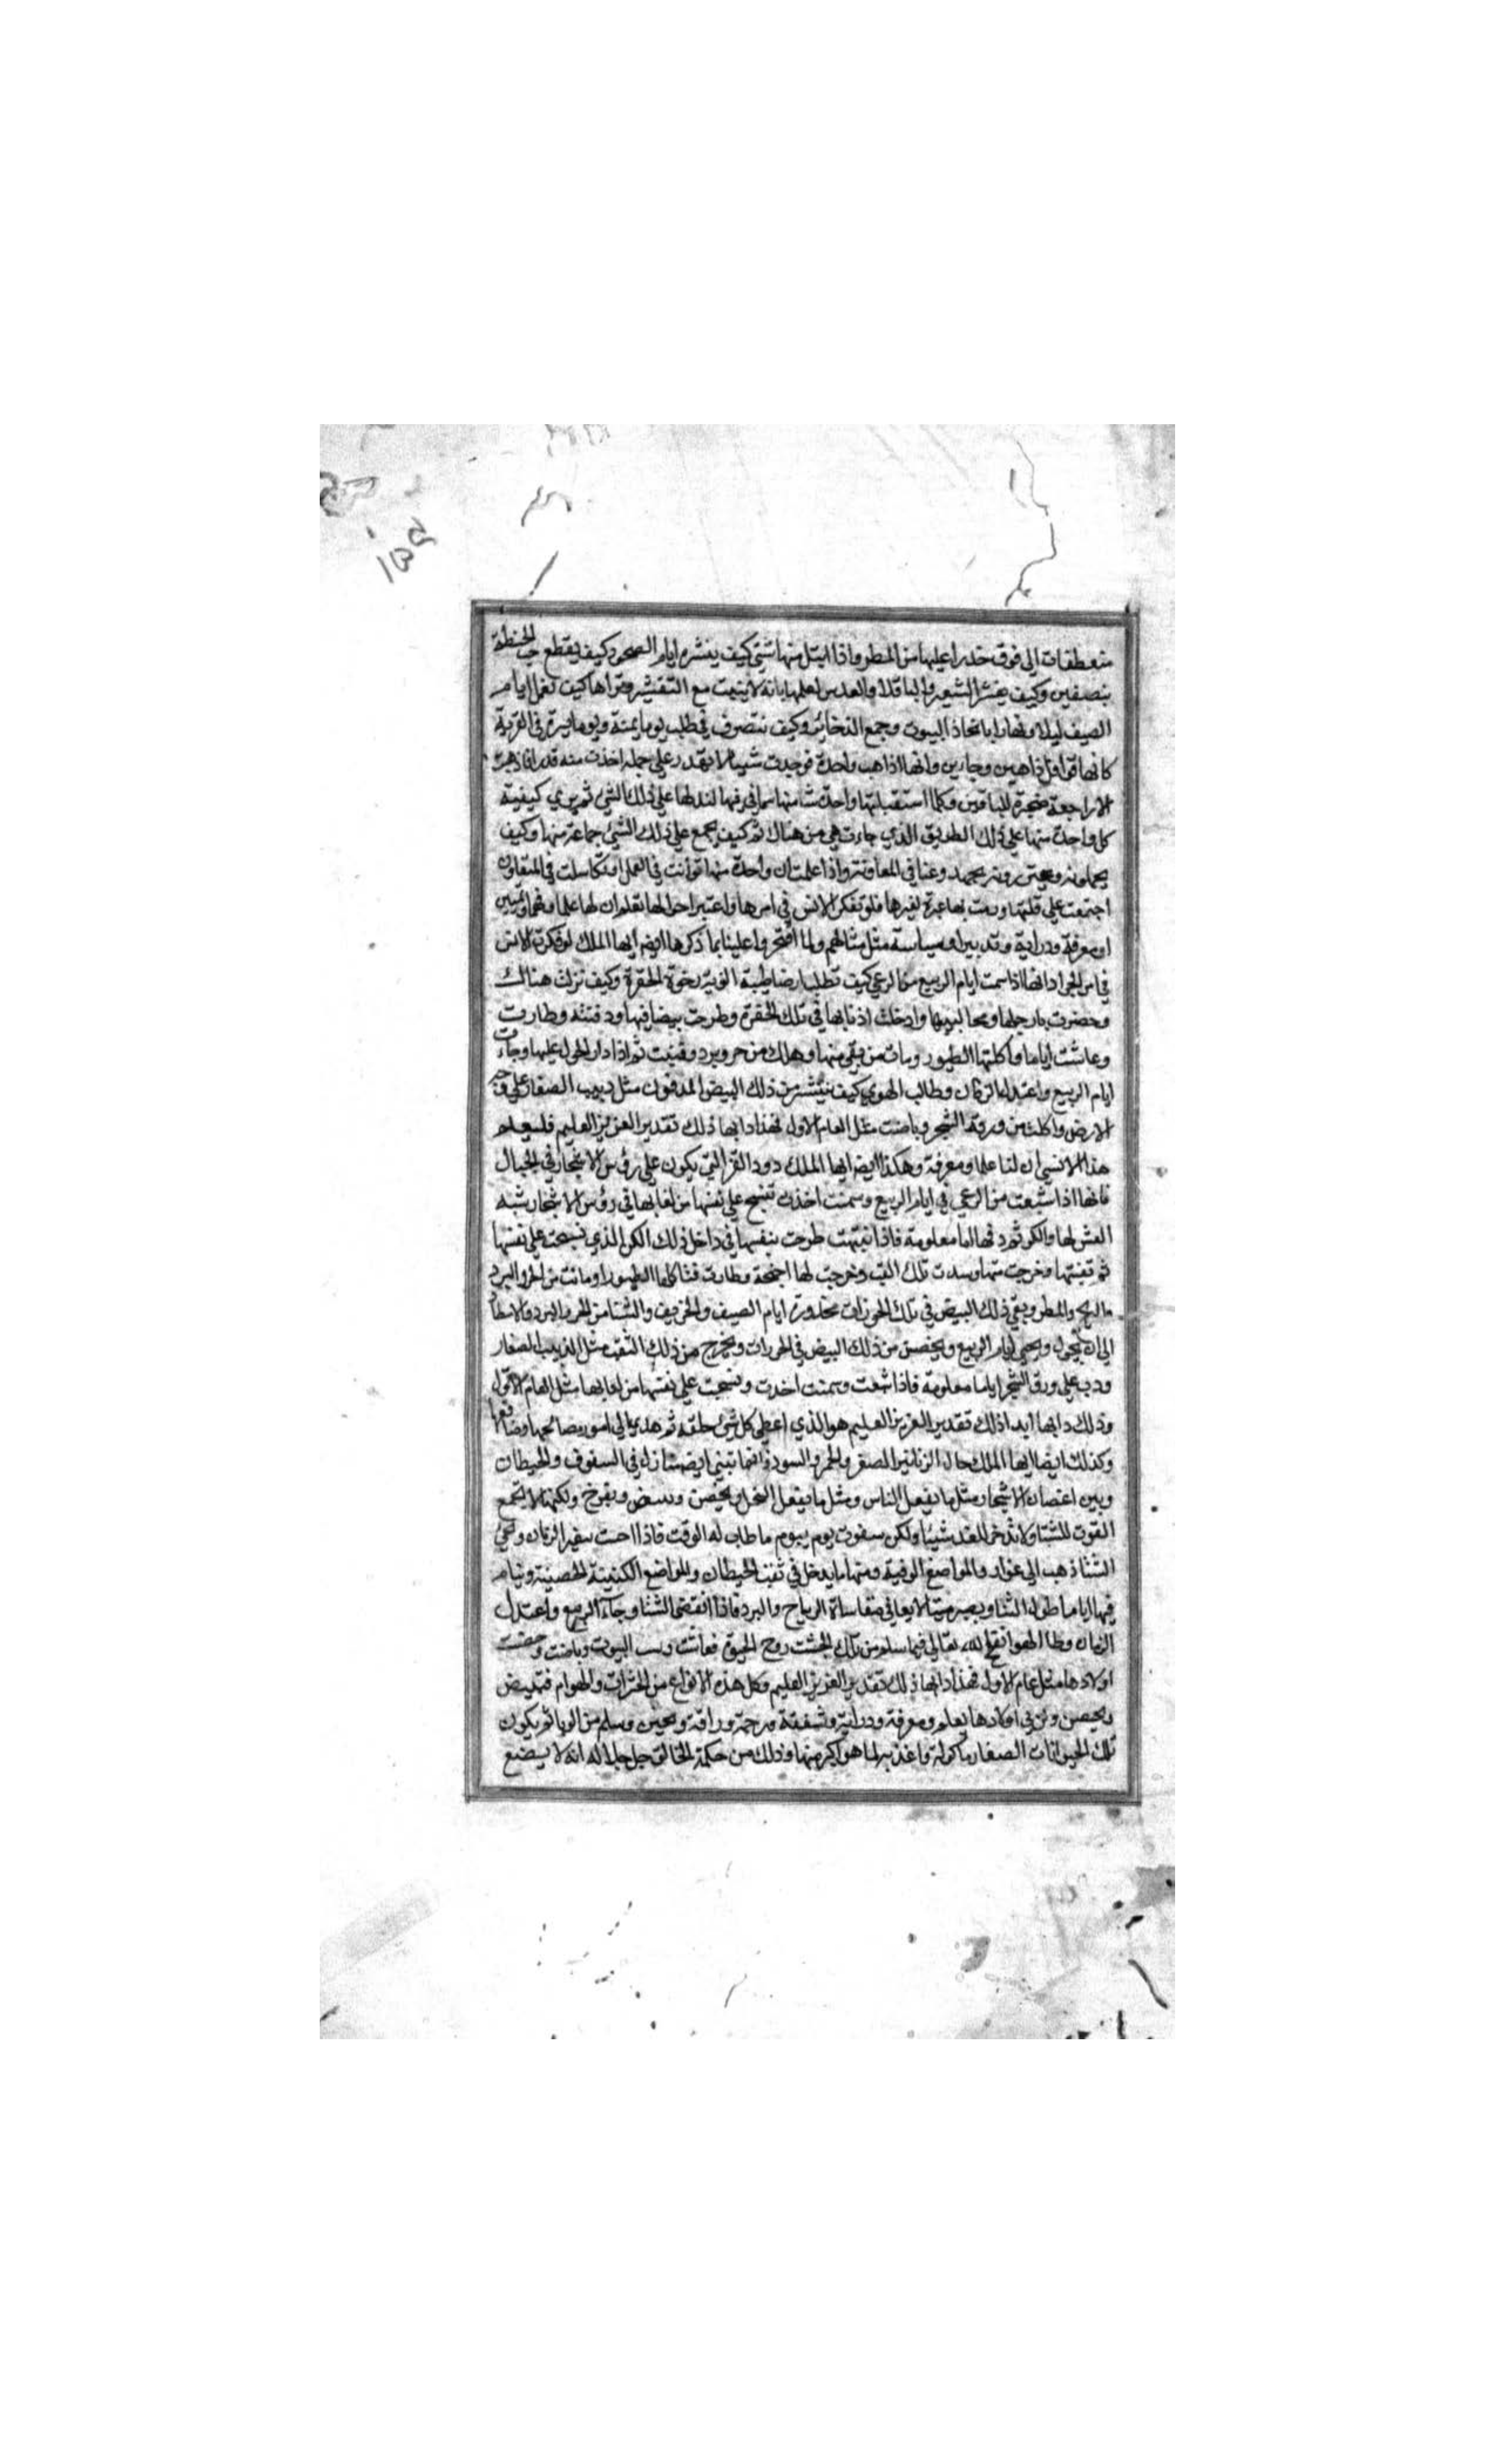 منعطفات الى فوق حذرا عليها من المطر واذا ابتل منها شئ كيف ينشره ايام الصحو وكيف يقطع حب الحنطة
بنصفين وكيف يقشر الشعير والباقلا والعدس لعلمها بانه لا ينبت مع التقشير وتراها كيف تعمل ايام
الصيف ليلا ونهارا باتخاذ البيوت وجمع الذخائر وكيف تتصرف في طلب يوما يمنة ويوما يسرة في القرية
كانها قوافل ذاهبين وجايين وانها اذا ذهب واحدة فوجدت شيئا لا تقدر على حمله اخذت منه قدرا وذهبت
الا راجعة مخبرة للباقين وكلما استقبلتها واحدة شامتها مما في فيها لتدلها على ذلك الشئ ثم يري كيفية
كل واحدة منها على ذلك الطريق الذي جاءت هي من هناك ثم كيف يجمع على ذلك الشئ جماعة منها وكيف
يحملونه ويجترونه بجهد وعنا في المعاونة واذا علمت ان واحدة منها توانت في العمل او تكاسلت في المتعاون
اجتمعت على قتلها ورمت بها عبرة لغيرها فلو تفكر الانس في امرها واعتبر احوالها لعلم ان لها علما وفهما وتمييز
او معرفة ودراية وتدبير او سياسة مثل مثالهم ولما افتخروا علينا بما ذكرها ايضا ايها الملك لو فكرت الانس
في امر الجراد انها اذا سمنت ايام الربيع من الرعي كيف تطلب ارضا طيبة التربة رخوة الحفرة وكيف نزلت هنالك
وحضرت بارجلها ومخالبيبها وادخلت اذنابها في تلك الحفرة وطرحت بيضا فيها ودفنته وطارت
وعاشت اياما واكلتها الطيور ومات من بقي منها وهلك من حر وبرد وفنيت ثم اذا دار الحول عليها وجات
ايام الربيع واعتدل الزمان وطاب الهوي كيف ينتشر من ذلك البيض المدفون مثل دبيب الصغار على وجه
الارض واكلت من ورقة الشجر وباضت مثل العام الاول فهذا دابها ذلك تقدير العزيز العليم فليعلم
هذا الانسي ان لنا علما ومعرفة وهكذا ايضا ايها الملك دود القز التي يكون على رؤس الاشجار في الجبال
فانها اذا شبعت من الرعي في ايام الربيع وسمنت اخذت تنسج على نفسها من لعابها في رؤس الاشجار شبه
العش لها والكر ثم دفها اياما معلومة فاذا نبتهت طرحت بنفسها في داخل ذلك الكن الذي نسجت على نفسها
ثم ثقبتها وخرجت منها وسدت تلك الثقب وخرجت لها اجنحة وطارت فتاكلها الطيور او ماتت من الحر والبرد
والريح والمطر ويبقي ذلك البيض في تلك الحرزات محذورة ايام الصيف والخريف والشتا من الحر والبرد والامطار
الى ان يحول ويجي ايام الربيع ويحضن من ذلك البيض في الحرزات ويخرج من ذلك الثقب مثل الدبيب الصغار
ودب على ورق الشجر اياما معلومة فاذا شبعت وسمنت اخذت ونسجت على نفسها من لعابها مثل العام الاول
وذلك دابها ابدا ذلك تقدير العزيز العليم هو الذي اعطى كل شئ خلقه ثم هدي الي امور مصالحها ومنافعها
وكذلك ايضا ايها الملك حال الزنانير الصفر والحمر والسود فانها تبني ايضا منازل في السقوف والحيطان
وبين اغصان الاشجار مثل ما يفعل الناس ومثل ما يفعل النحل ويحضن وتبيض وتفرخ ولكنها لا يجمع
القوت للشتا ولا تدخر للغد شيئا ولكن تقوت يوم بيوم ما طاب له الوقت فاذا احست بتغير الزمان ومجئ
الشتا ذهب الى غوار والمواضع الدفية ومنها ما يدخل في ثقب الحيطان والمواضع الكنينة الحصينة وتنام
فيها اياما طول الشتا ويصير ميتا لا يعاني مقاساة الرياح والبرد فاذا انقضى الشتا وجآء الربيع واعتدل
الزمان وطاب الهوا نفخ الله تعالى فيما سلم من تلك الجثث روح الحيوة فعاشت وبنت البيوت وباضت وحضنت
اولادها مثل عام الاول فهذا دابها ذلك تقدير العزيز العليم وكل هذه الانواع من الحشرات والهوام فتبيض
ويحضن وتربي اولادها بعلم ومعرفة ودراية وشفقة ورحمة ورافة وتحنن وسلم من الوبا ثم يكون
تلك الحيوانات الصغار ماكولة واغذية لما هو اكبر منها وذلك من حكمة الخالق جل جلاله انه لا يضيع